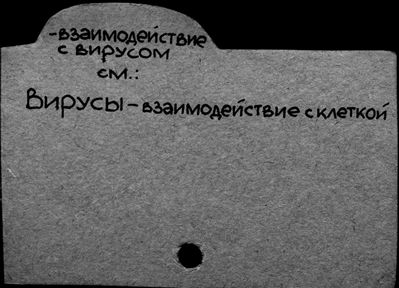 -взаимодействие
с вирусом
см.:
Вирусы - взаимодействие с клеткой